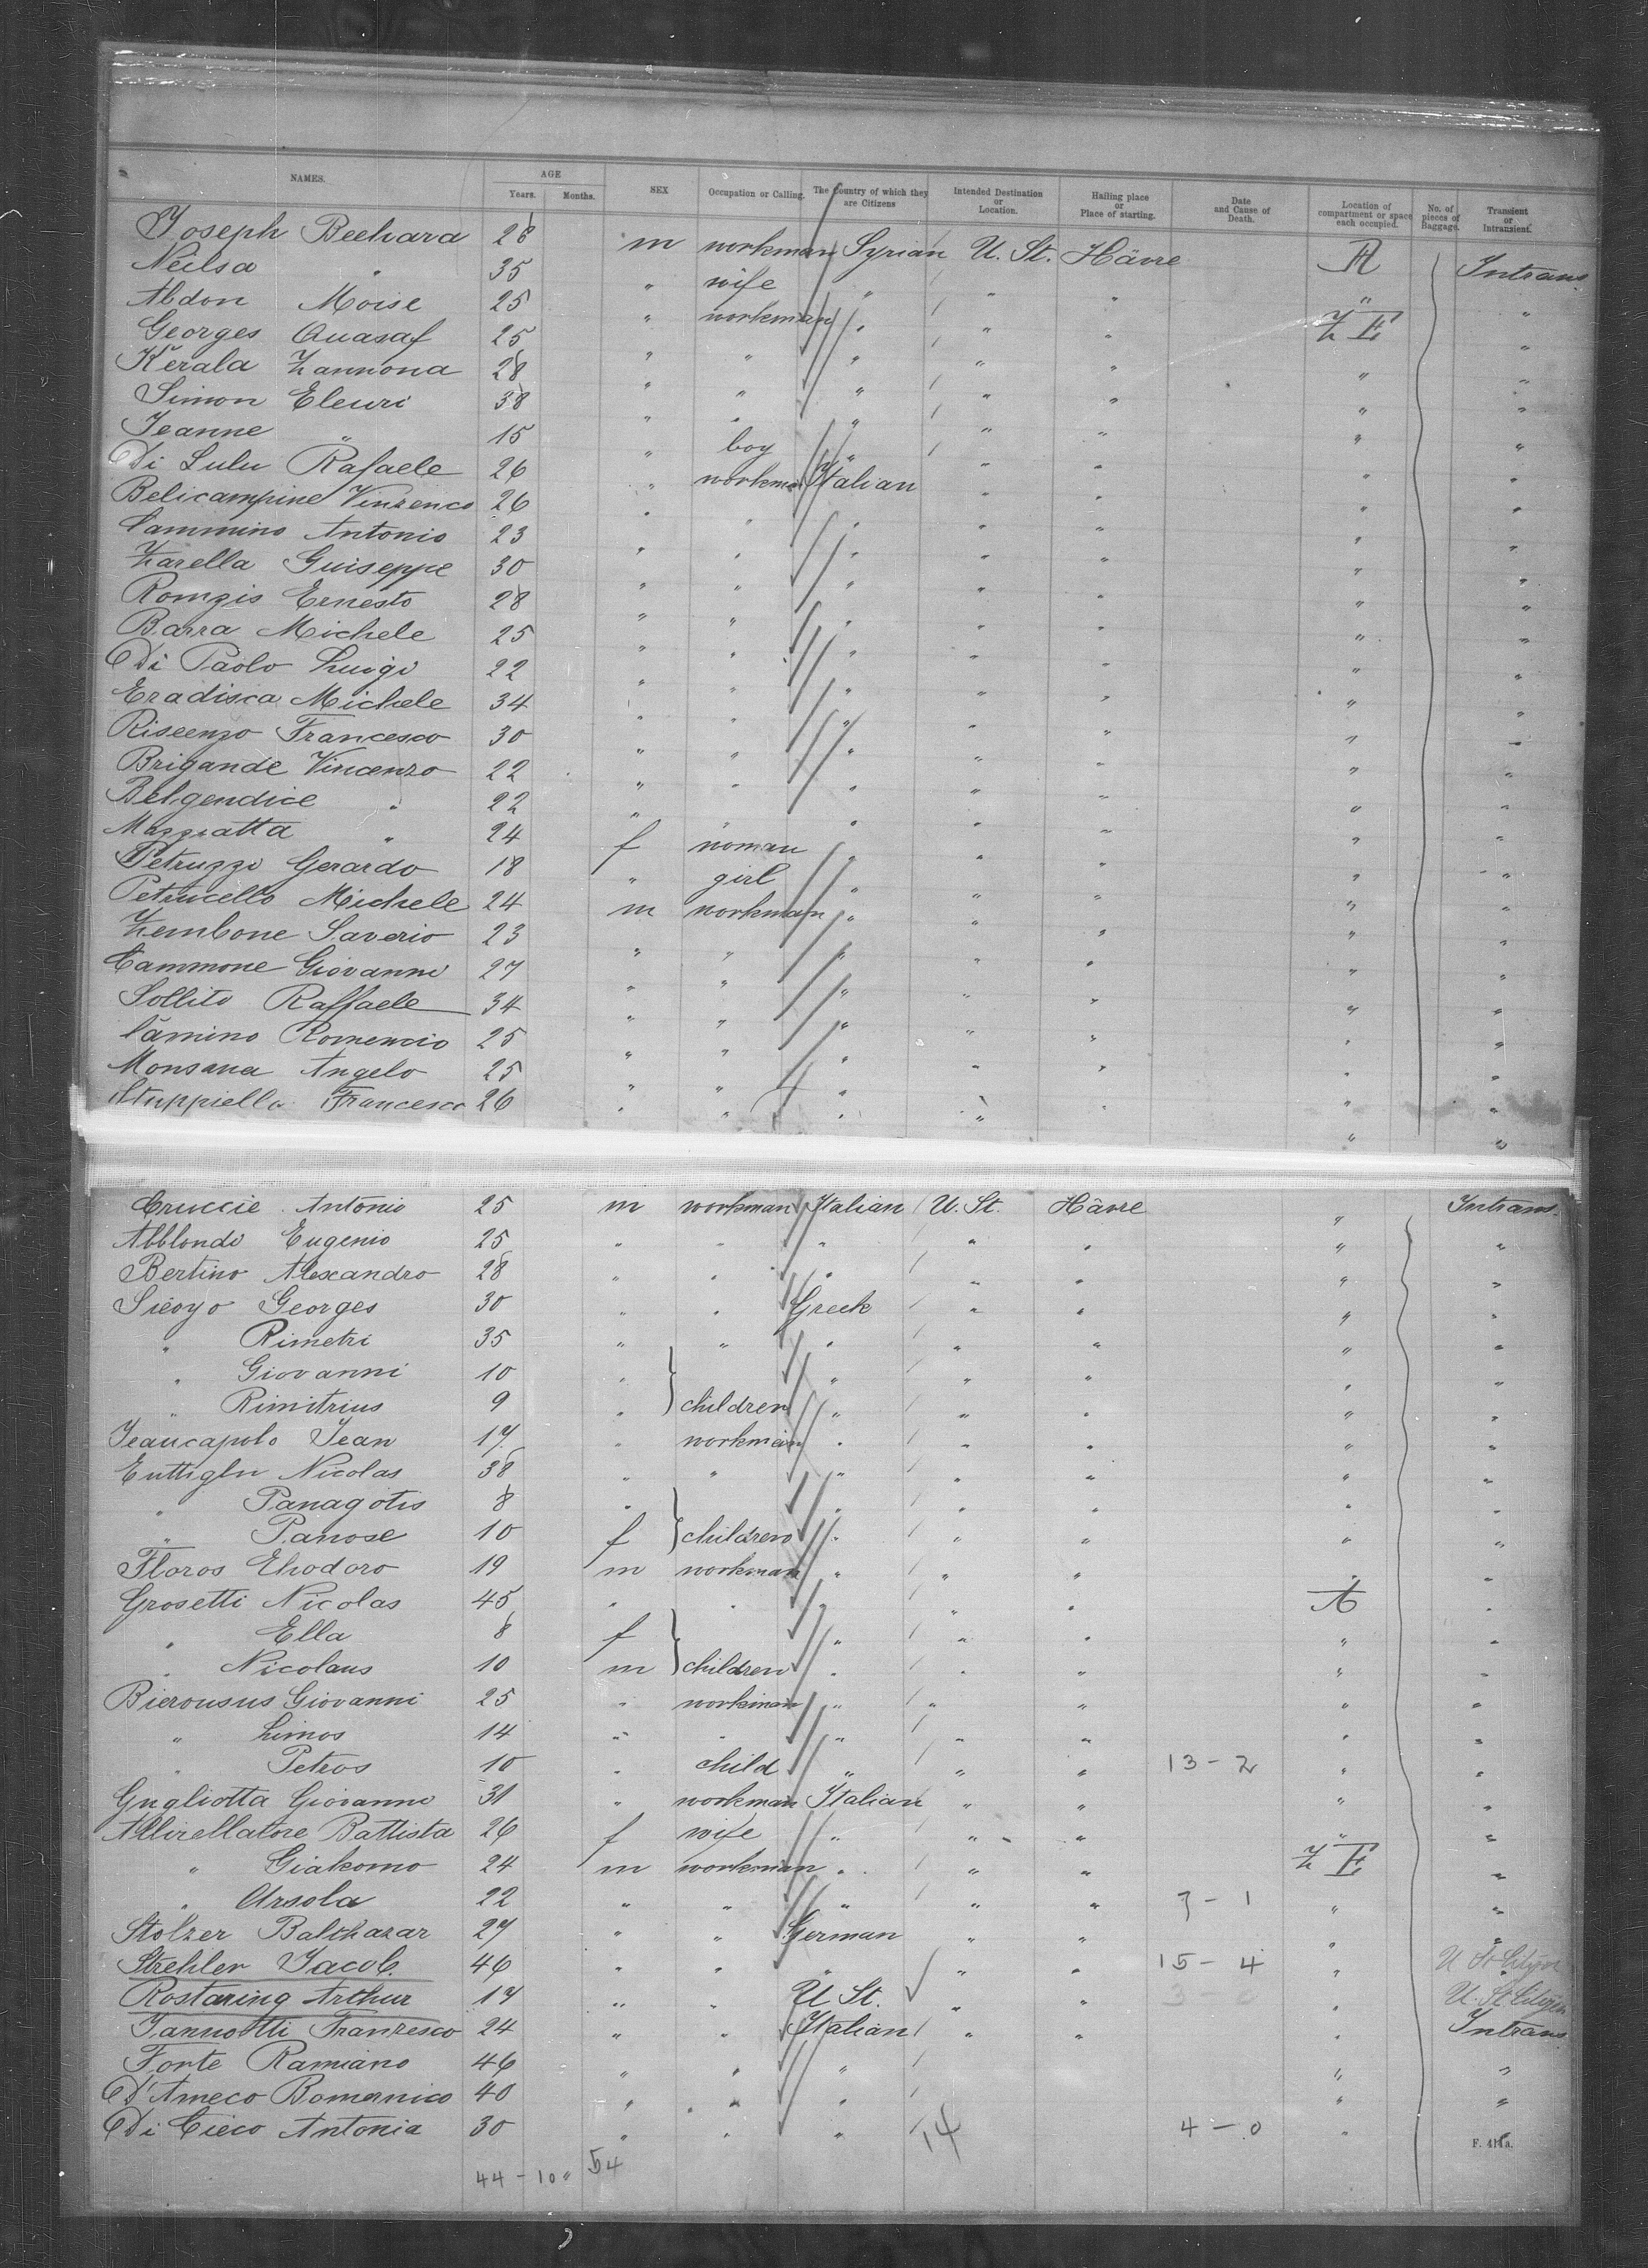 NAMES. AGE Years. Months. SEX Occupation or Calling. The Country of which they are Citizens Intended Destination or Location. Hailing place or Place of starting. Date and Cause of Death. Location of compartment or space each occupied. No. of pieces of Baggage. Transient or Intransient.
Joseph Bechara 28 m workman Syrian U. St. Hâvre A Intrans.
Neilsa " 35 " wife " " " " "
Abdon Moise 25 " workman " " " Z E "
Georges Quasaf 25 " " " " " " "
Kerala Zannona 28 " " " " " " "
Simon Eleuri 38 " " " " " " "
Jeanne " 15 " boy " " " " "
Di Lulu Rafaele 26 " workman Italian " " " "
Belicampine Vinzenco 26 " " " " " " "
Cammino Antonio 23 " " " " " " "
Zarella Guiseppe 30 " " " " " " "
Romzis Ernesto 28 " " " " " " "
Barra Michele 25 " " " " " " "
Di Paolo Luigi 22 " " " " " " "
Eradisca Michele 34 " " " " " " "
Riseenzo Francesco 30 " " " " " " "
Brigande Vincenzo 22 " " " " " " "
Belgendice " 22 " " " " " " "
Mazziatta " 24 f woman " " " " "
Petruzzi Gerardo 18 " girl " " " " "
Petrucello Michele 24 m workman " " " " "
Zembone Saverio 23 " " " " " " "
Cammone Giovanni 27 " " " " " " "
Sollito Raffaele 34 " " " " " " "
Camino Romencio 25 " " " " " " "
Monsana Angelo 25 " " " " " " "
Stuppiello Francesco 26 " " " " " " "
Cruccie Antonio 25 m workman Italian U. St. Hâvre " Intrans.
Abblondi Eugenio 25 " " " " " " "
Bertino Alexandro 28 " " " " " " "
Sicoyo Georges 30 " " Greek " " " "
" Rimetri 35 " " " " " " "
" Giovanni 10 " " " " " "
" Rimitrius 9 " children " " " " "
Jeaucapolo Jean 17 " workman " " " " "
Euttigln Nicolas 38 " " " " " " "
" Panagotis 8 " " " " " "
" Panose 10 f children " " " " "
Floros Ehodoro 19 m workman " " " " "
Grosetti Nicolas 45 " " " " " A "
" Ella 8 f " " " " "
" Nicolaus 10 m children " " " " "
Bierousus Giovanni 25 " workman " " " " "
" Limos 14 " " " " " " "
" Petros 10 " child " " " 13 - 2 " "
Gugliotta Giovanni 31 " workman Italian " " " "
Allirellatore Battista 26 f wife " " " " "
" Giakomo 24 m workman " " " Z E "
" Ursola 22 " " " " " 7 - 1 " "
Stolzer Balthazar 27 " " German " " " "
Strehler Jacob. 46 " " " " " 15 - 4 " U St Citizen
Rostaring Arthur 17 " " U St. " " " U. St. Citizen
Iannotti Franzesco 24 " " Italian " " " Intrans
Forte Ramiano 46 " " " " "
D'Ameco Bomernico 40 " " " " "
Di Cieco Antonia 30 " " " 14 4 - 0 "
44 - 10 " 54
F. 411a.